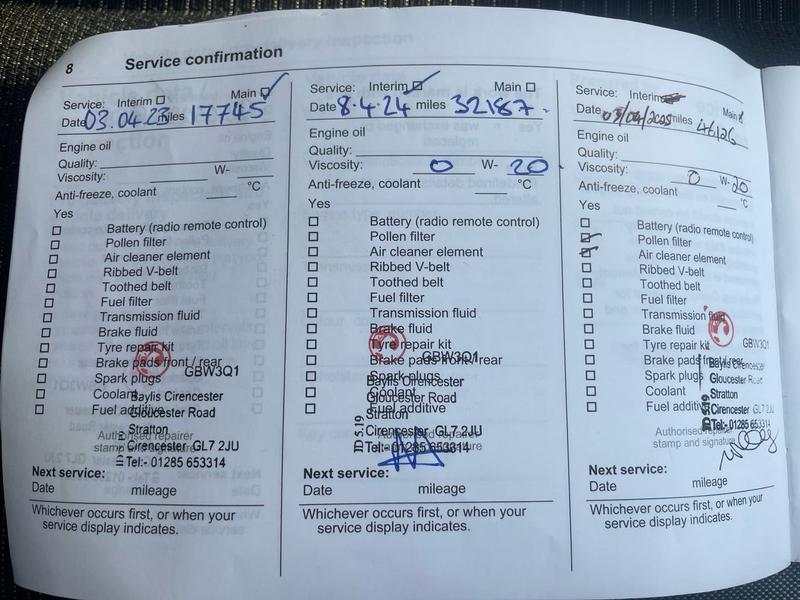 8
Service confirmation
Service: Interim Main
Date 03.04.23 miles 17745
Engine oil
Quality:
Viscosity: W-
Anti-freeze, coolant °C
Yes
Battery (radio remote control)
Pollen filter
Air cleaner element
Ribbed V-belt
Toothed belt
Fuel filter
Transmission fluid
Brake fluid
Tyre repair kit
Brake pads front / rear
GBW3Q1
Spark plugs
Coolant
Baylis Cirencester
Fuel additive
Gloucester Road
Stratton
Authorised repairer
stamp and signature
Cirencester GL7 2JU
Tel:- 01285 653314
Next service:
Date mileage
Whichever occurs first, or when your
service display indicates.
Service: Interim Main
Date 8.4.24 miles 32187.
Engine oil
Quality:
Viscosity: 0 W- 20.
Anti-freeze, coolant °C
Yes
Battery (radio remote control)
Pollen filter
Air cleaner element
Ribbed V-belt
Toothed belt
Fuel filter
Transmission fluid
Brake fluid
Tyre repair kit
GBW3Q1
Brake pads front / rear
Spark plugs
Baylis Cirencester
Coolant
Gloucester Road
Fuel additive
Stratton
JD 5.19
Cirencester GL7 2JU
Authorised repairer
Tel:- 01285 653314
stamp and signature
Next service:
Date mileage
Whichever occurs first, or when your
service display indicates.
Service: Interim Main
Date 03/04/2025 miles 46126
Engine oil
Quality:
Viscosity: 0 W- 20
Anti-freeze, coolant °C
Yes
Battery (radio remote control)
Pollen filter
Air cleaner element
Ribbed V-belt
Toothed belt
Fuel filter
Transmission fluid
Brake fluid
Tyre repair kit
GBW3Q1
Brake pads front / rear
Baylis Cirencester
Spark plugs
Gloucester Road
Coolant
Stratton
Fuel additive
JD 5.19
Cirencester GL7 2JU
Tel:- 01285 653314
Authorised repairer
stamp and signature
Next service:
Date mileage
Whichever occurs first, or when your
service display indicates.